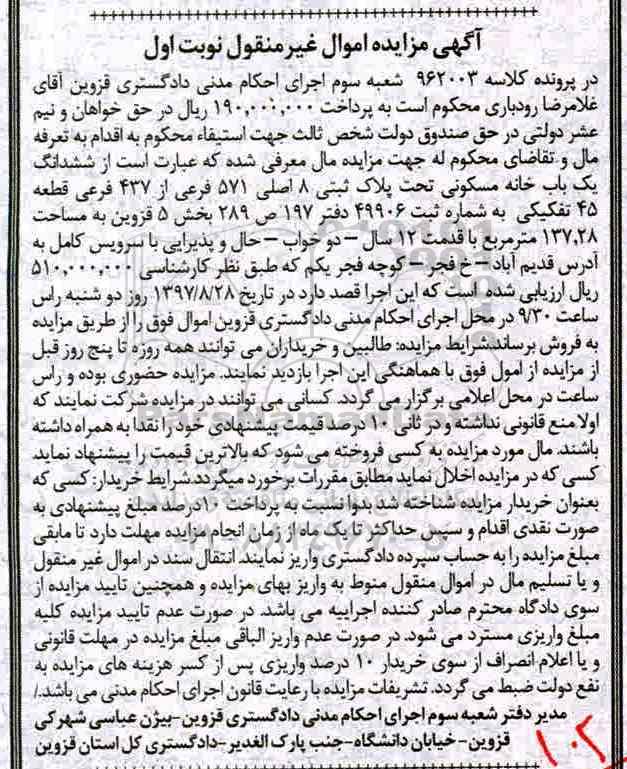 آگهی مزایده اموال غیرمنقول نوبت اول
در پرونده کلاسه ۹۶۲۰۰۳ شعبه سوم اجرای احکام مدنی دادگستری قزوین آقای
غلامرضا رودباری محکوم است به پرداخت ۱۹۰,۰۰۰,۰۰۰ ریال در حق خواهان و نیم
عشر دولتی در حق صندوق دولت شخص ثالث جهت استیفاء محکوم به اقدام به تعرفه
مال و تقاضای محکوم له جهت مزایده مال معرفی شده که عبارت است از ششدانگ
یک باب خانه مسکونی تحت پلاک ثبتی ۸ اصلی ۵۷۱ فرعی از ۴۳۷ فرعی قطعه
۴۵ تفکیکی به شماره ثبت ۴۹۹۰۶ دفتر ۱۹۷ ص ۲۸۹ بخش ۵ قزوین به مساحت
۱۳۷,۲۸ مترمربع با قدمت ۱۲ سال – دو خواب – حال و پذیرایی با سرویس کامل به
آدرس قدیم آباد – خ فجر – کوچه فجر یکم که طبق نظر کارشناسی ۵۱۰,۰۰۰,۰۰۰
ریال ارزیابی شده است که این اجرا قصد دارد در تاریخ ۱۳۹۷/۸/۲۸ روز دو شنبه راس
ساعت ۹/۳۰ در محل اجرای احکام مدنی دادگستری قزوین اموال فوق را از طریق مزایده
به فروش برساند.شرایط مزایده: طالبین و خریداران می توانند همه روزه تا پنج روز قبل
از مزایده از امول فوق با هماهنگی این اجرا بازدید نمایند. مزایده حضوری بوده و راس
ساعت در محل اعلامی برگزار می گردد. کسانی می توانند در مزایده شرکت نمایند که
اولا منع قانونی نداشته و در ثانی ۱۰ درصد قیمت پیشنهادی خود را نقدا به همراه داشته
باشند. مال مورد مزایده به کسی فروخته می شود که بالاترین قیمت را پیشنهاد نماید.
کسی که در مزایده اخلال نماید مطابق مقررات برخورد میگردد.شرایط خریدار: کسی که
بعنوان خریدار مزایده شناخته شد بدوا نسبت به پرداخت ۱۰درصد مبلغ پیشنهادی به
صورت نقدی اقدام و سپس حداکثر تا یک ماه از زمان انجام مزایده مهلت دارد تا مابقی
مبلغ مزایده را به حساب سپرده دادگستری واریز نمایند. انتقال سند در اموال غیر منقول
و یا تسلیم مال در اموال منقول منوط به واریز بهای مزایده و همچنین تایید مزایده از
سوی دادگاه محترم صادر کننده اجراییه می باشد. در صورت عدم تایید مزایده کلیه
مبلغ واریزی مسترد می شود. در صورت عدم واریز الباقی مبلغ مزایده در مهلت قانونی
و یا اعلام انصراف از سوی خریدار ۱۰ درصد واریزی پس از کسر هزینه های مزایده به
نفع دولت ضبط می گردد. تشریفات مزایده با رعایت قانون اجرای احکام مدنی می باشد./
مدیر دفتر شعبه سوم اجرای احکام مدنی دادگستری قزوین-بیژن عباسی شهرکی
قزوین- خیابان دانشگاه-جنب پارک الغدیر-دادگستری کل استان قزوین
۱۰۲